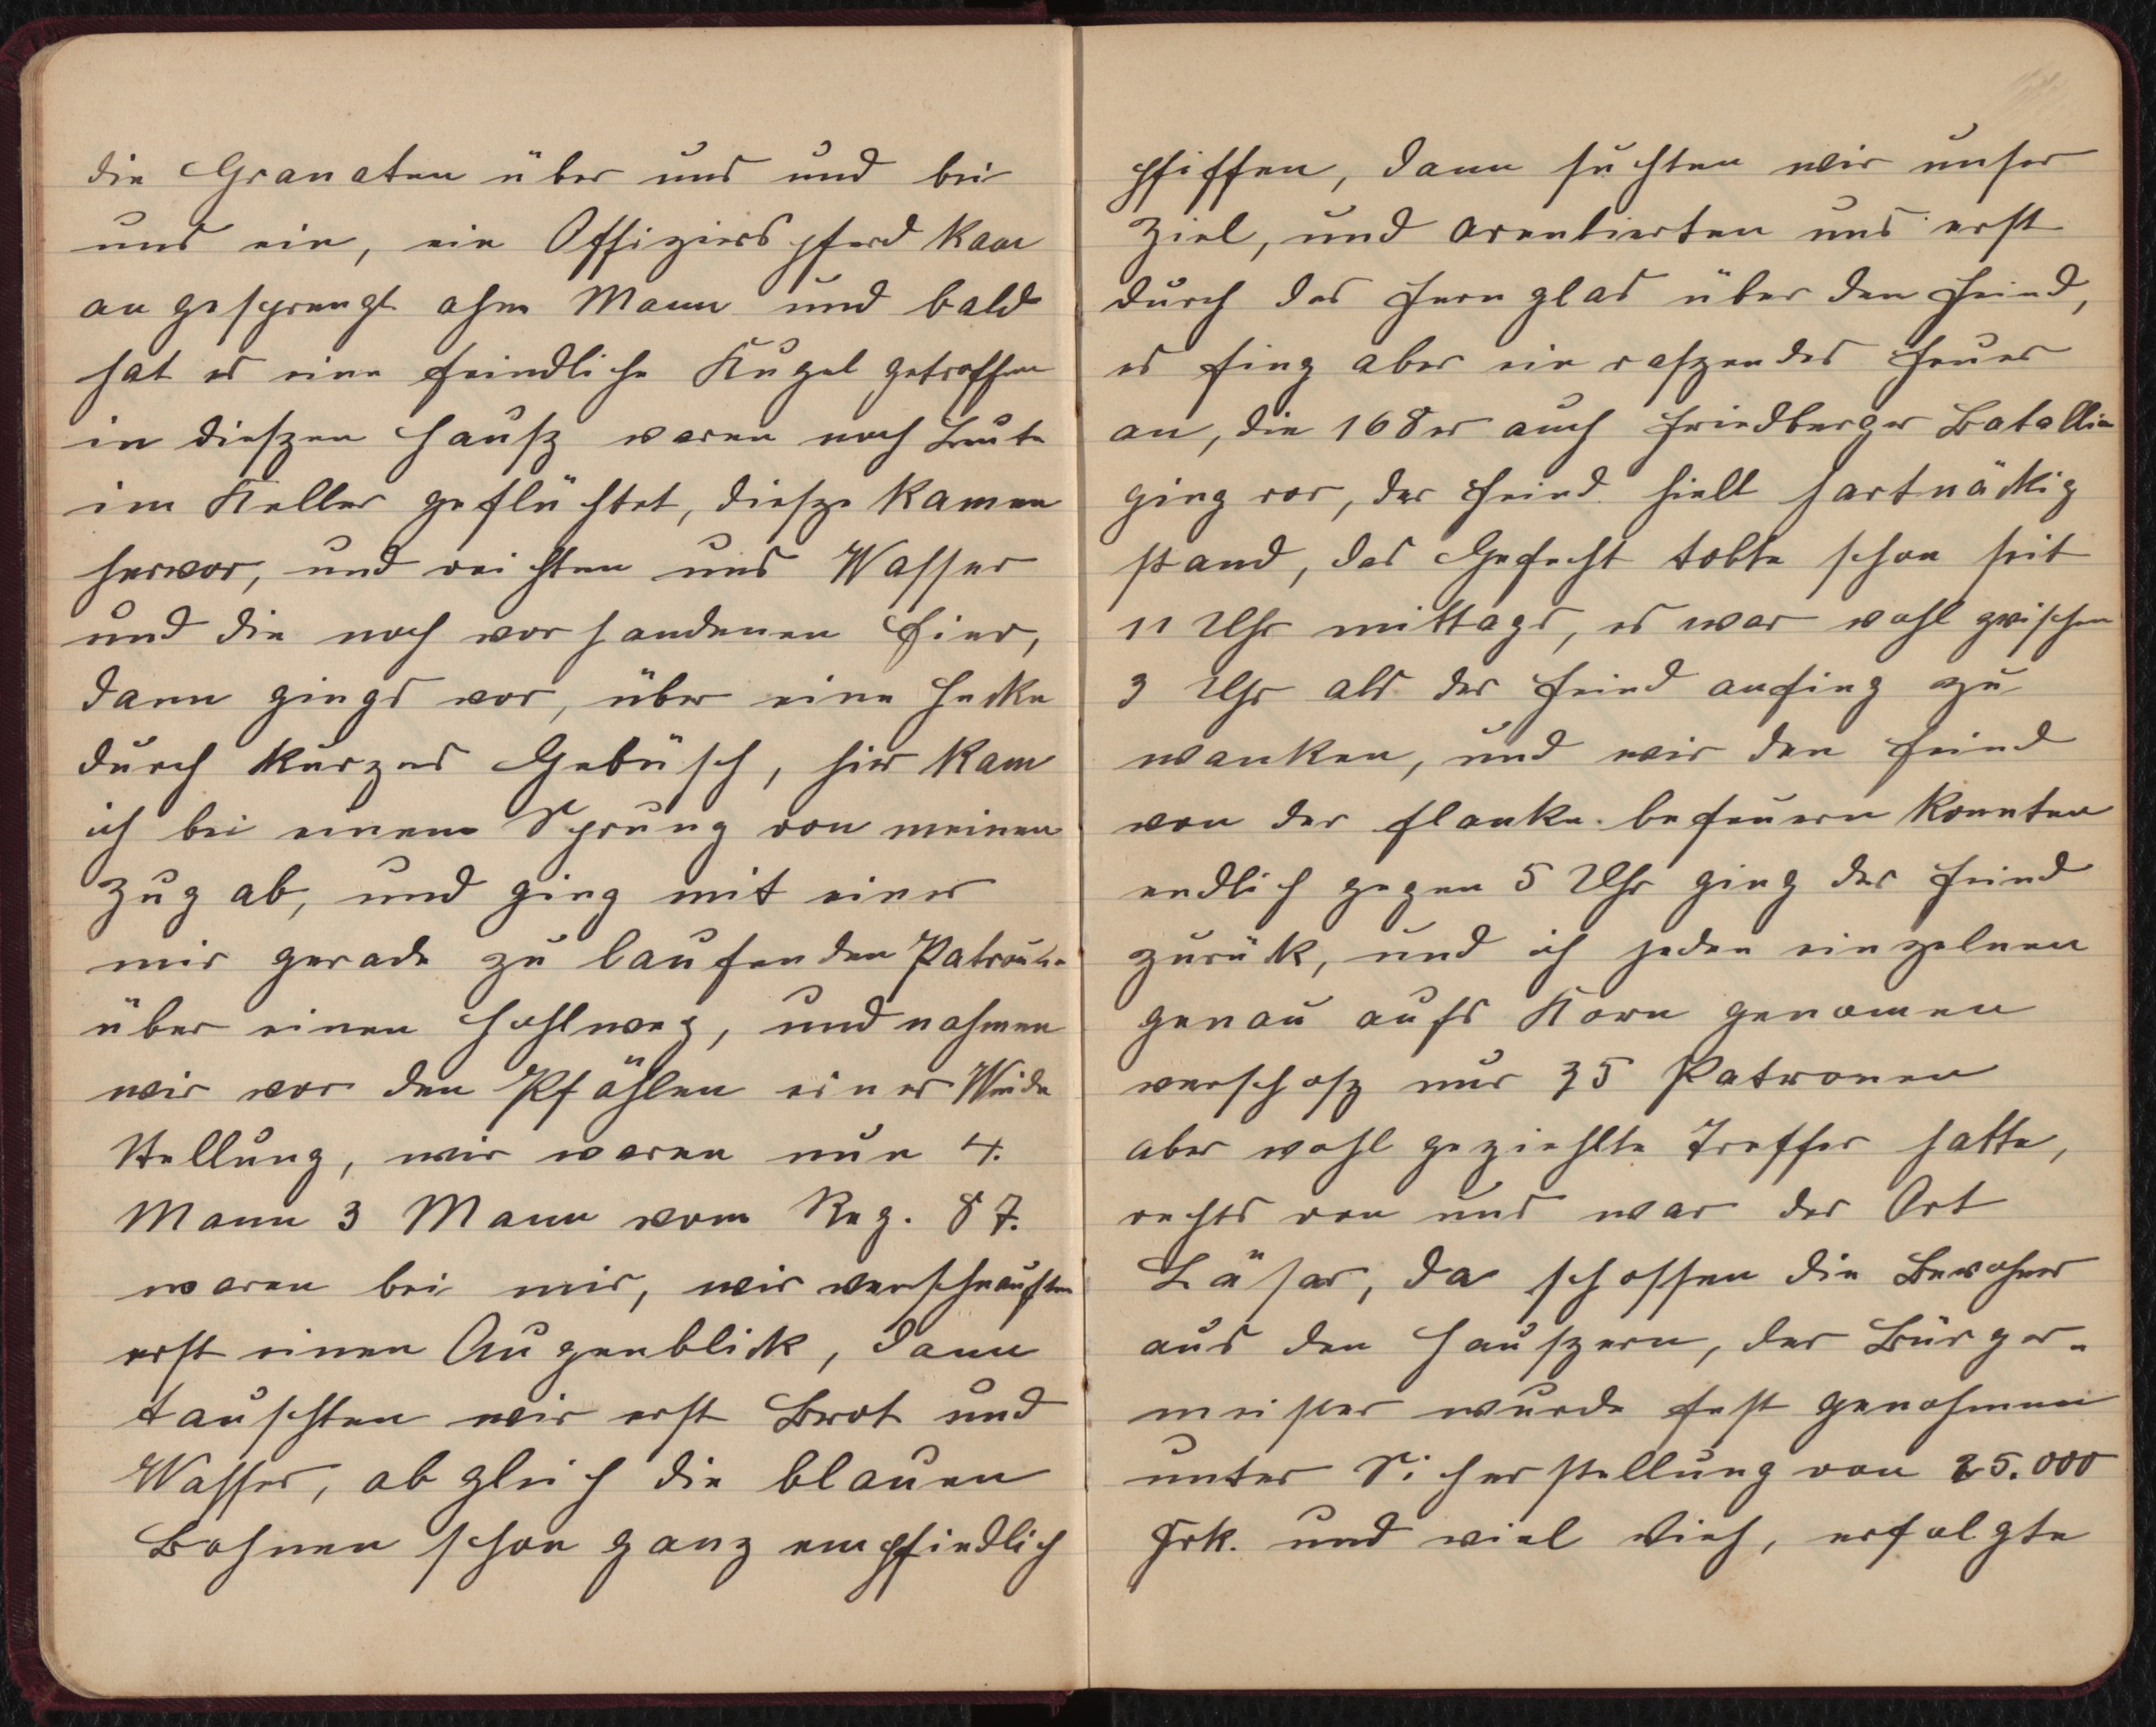 die Granaten über uns und bei
uns ein, ein Offizierspferd kam
angesprengt ohne Mann und bald
hat es eine feindliche Kugel getroffen
in dieszen Hausz waren noch Leute
im Keller geflüchtet, diesze kamen
hervor, und reichten uns Wasser
und die noch vorhandenen Eier,
dann gings vor, über eine Hecke
durch kurzes Gebüsch, hier kam
ich bei einem Sprung von meinen
Zug ab, und ging mit einer
mir gerade zu laufenden
über einen Hohlweg, und nahmen
wir vor den Pfählen einer Weide
Stellung, wir waren nun 4.
Mann 3 Mann vom Reg. 87.
waren bei mir, wir verschnauften
erst einen Augenblick, dann
tauschten wir erst Brot und
Wasser, obgleich die blauen
Bohnen schon ganz empfindlich
pfiffen, dann suchten wir unser
Ziel, und orentierten uns erst
durch das Fernglas über den Feind,
es fing aber ein raszendes Feuer
an, die 168er auch Friedberger Batallion
ging vor, der Feind hielt hartnäckig
stand, das Gefecht tobte schon seit
11 Uhr mittags, es war wohl zwischen
3 Uhr als der Feind anfing zu
wanken, und wir den Feind
von der Flanke befeuern konnten
endlich gegen 5 Uhr ging der Feind
zurück, und ich jeden einzelnen
genau aufs Korn genomen
verschosz nur 35 Patronen
aber wohl geziehlte Treffer hatte,
rechts von uns war der Ort
Läsar, da schossen die Bewohner
aus den Hauszern, der Bürger-
meister wurde fest genohmen
unter Sicherstellung von 25.000
Frk. und viel Vieh, erfolgte